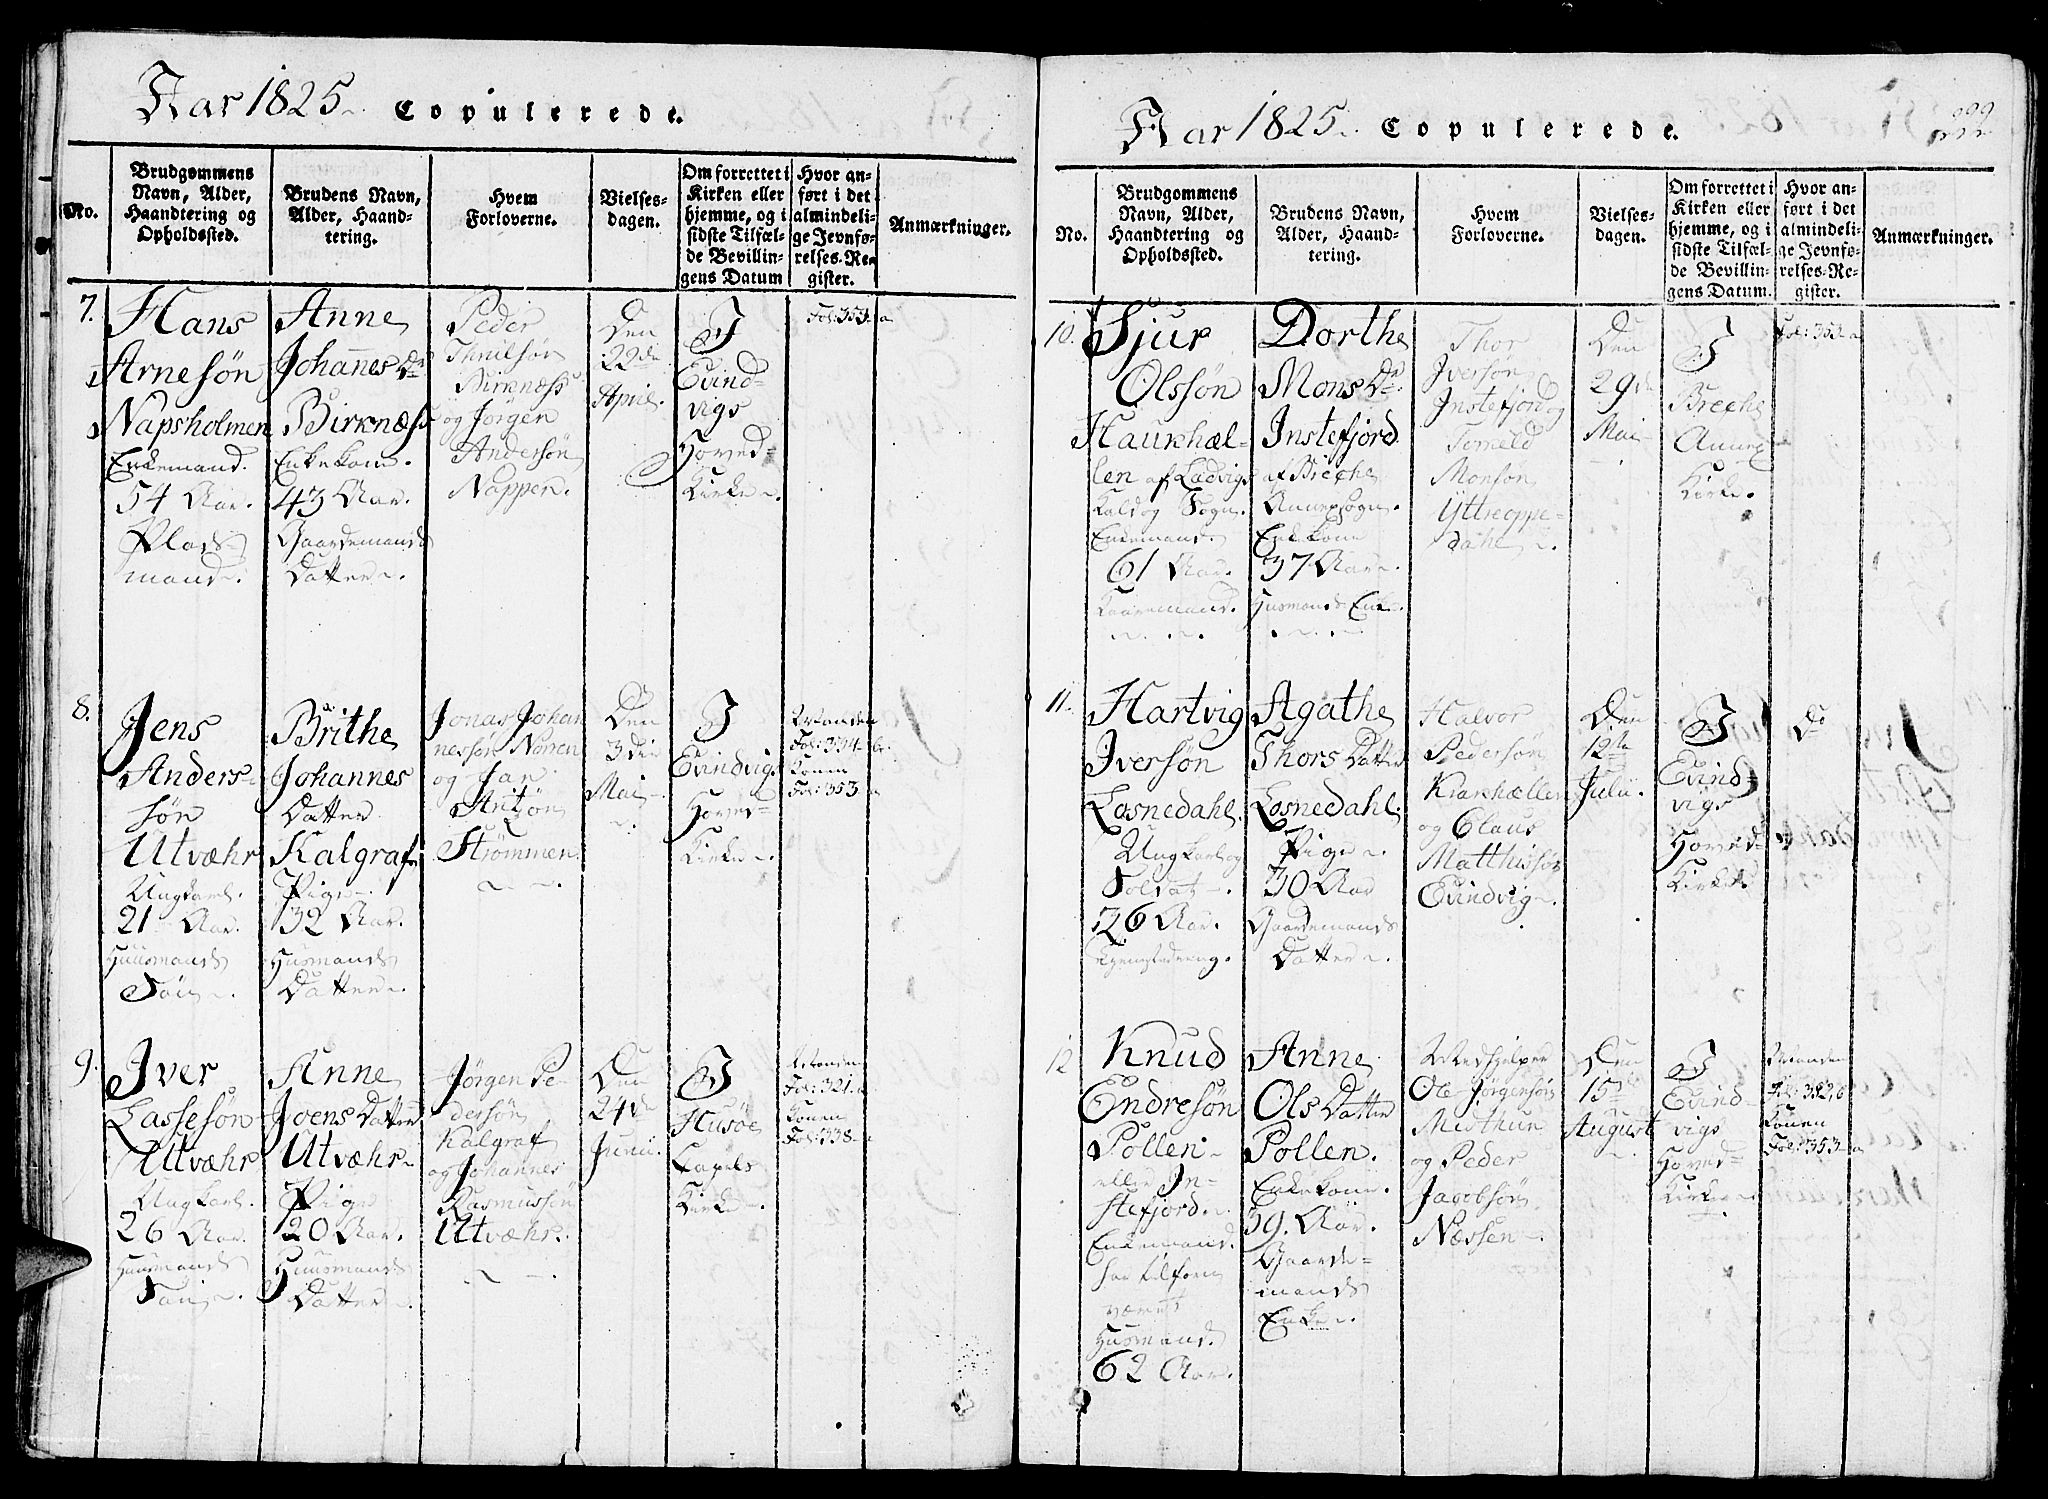 Aar 1825. Copulerede.
No.
Brudgommens
Navn, Alder,
Haandtering og
Opholdssted.
Brudens Navn,
Alder, Haand-
tering.
Hvem
Forloverne.
Vielses-
dagen.
Om forrettet i
Kirken eller
hjemme, og i
sidste Tilfæl-
de Bevillin-
gens Datum
Hvor an-
ført i det
almindeli-
ge Jevnfø-
relses-Re-
gister.
Anmærkninger.
7.
Hans
Arnesøn
Napsholmen
Enkemand.
54 Aar.
Plads-
mand.
Anne
Johannes Dr
Birknæss
Enkekone.
43 Aar.
Gaardemands
Datter.
Peder
Birknæss
og Jørgen
Andersøn
Nappen.
Den
22de
April.
I
Evind-
vigs
Hoved-
Kirke.
Fol: 353 a
8.
Jens
Anders-
søn
Utvæhr
Ungkarl.
21 Aar.
Huusmands
Søn.
Brithe
Johannes
Datter
Kalgraf
Pige.
32 Aar.
Husmands
Datter.
Jonas Johan
nessøn Norren
og Jan
Antøn
Strømmen.
Den
3die
Mai
I
Evindvigs
Hoved-
Kirke.
Manden
Fol: 334 b.
Konen
Fol: 353 a
9.
Iver
Lassesøn
Utvæhr
Ungkarl.
26 Aar.
Huusmands
Søn.
Anne
Joens Datter
Utvæhr
Pige
20 Aar.
Huusmands
Datter.
Jørgen Pe-
dersøn
Kalgraf
og Johannes
Rasmussøn
Utvæhr.
Den
24de
Junii.
I
Husøe
Capels
Kirke.
Manden
Fol: 321. a
Konen
Fol: 338. a
Aar 1825. Copulerede.
No.
Brudgommens
Navn, Alder,
Haandtering og
Opholdssted.
Brudens Navn,
Alder, Haand-
tering.
Hvem
Forloverne.
Vielses-
dagen.
Om forrettet i
Kirken eller
hjemme, og i
sidste Tilfæl-
de Bevillin-
gens Datum.
Hvor an-
ført i det
almindeli-
ge Jevnfø-
relses-Re-
gister.
Anmærkninger.
10.
Sjur
Olssøn
Haukhæl-
len af Ladvigs
Kald og Sogn.
Enkemand.
61 Aar.
Kaaremand.
Dorthe
Mons Dr
Instefjord
af Breche
Annexsogn.
Enkekone
37 Aar.
Husmands Enke.
Thor
Iversøn
Instefjord og
Monsøn
Yttreoppe-
dahl.
Den
29de
Mai
I
Breche
Annex
Kirke.
Fol: 353 a
11.
Hartvig
Iversøn
Losnedahl.
Ungkarl og
Soldat.
26 Aar.
Agathe
Thors Datter
Losnedahl.
Pige.
30 Aar
Gaardemands
Datter.
Halvor
Pedersøn
Krakhællen
og Claus
Matthissøn
Evindvig.
Den
12te
Julii.
I
Evind-
vigs
Hoved-
Kirke.
Do
12
Knud
Endresøn
Pollen
eller In-
stefjord.
Enkemand.
har tilforn
været
Husmand.
62 Aar.
Anne
Ols Datter
Pollen.
Enkekone.
39. Aar.
Gaarde-
mands
Enke.
Medhjelper
Ole Jørgensøn
Midthun
og Peder
Jacobsøn
Næssen.
Den
15de
August
I
Evind-
vigs
Hoved-
Kirke.
Manden
Fol: 352, b
Konen
Fol: 353 a